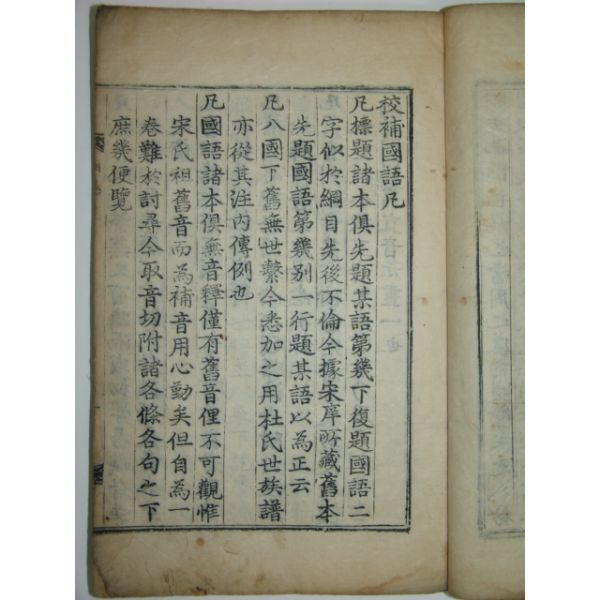 校補國語凡
凡標題諸本俱先題某語第幾下復題國語二
字似於綱目先後不倫今據宋庠所藏舊本
先題國語第幾別一行題某語以為正云
凡八國下舊無世繫今悉加之用杜氏世族譜
亦從其注內傳例也
凡國語諸本俱無音釋僅有舊音俚不可觀惟
宋氏祖舊音而為補音用心勤矣但自為一
卷難於討尋今取音切附諸各條各句之下
庶幾便覽